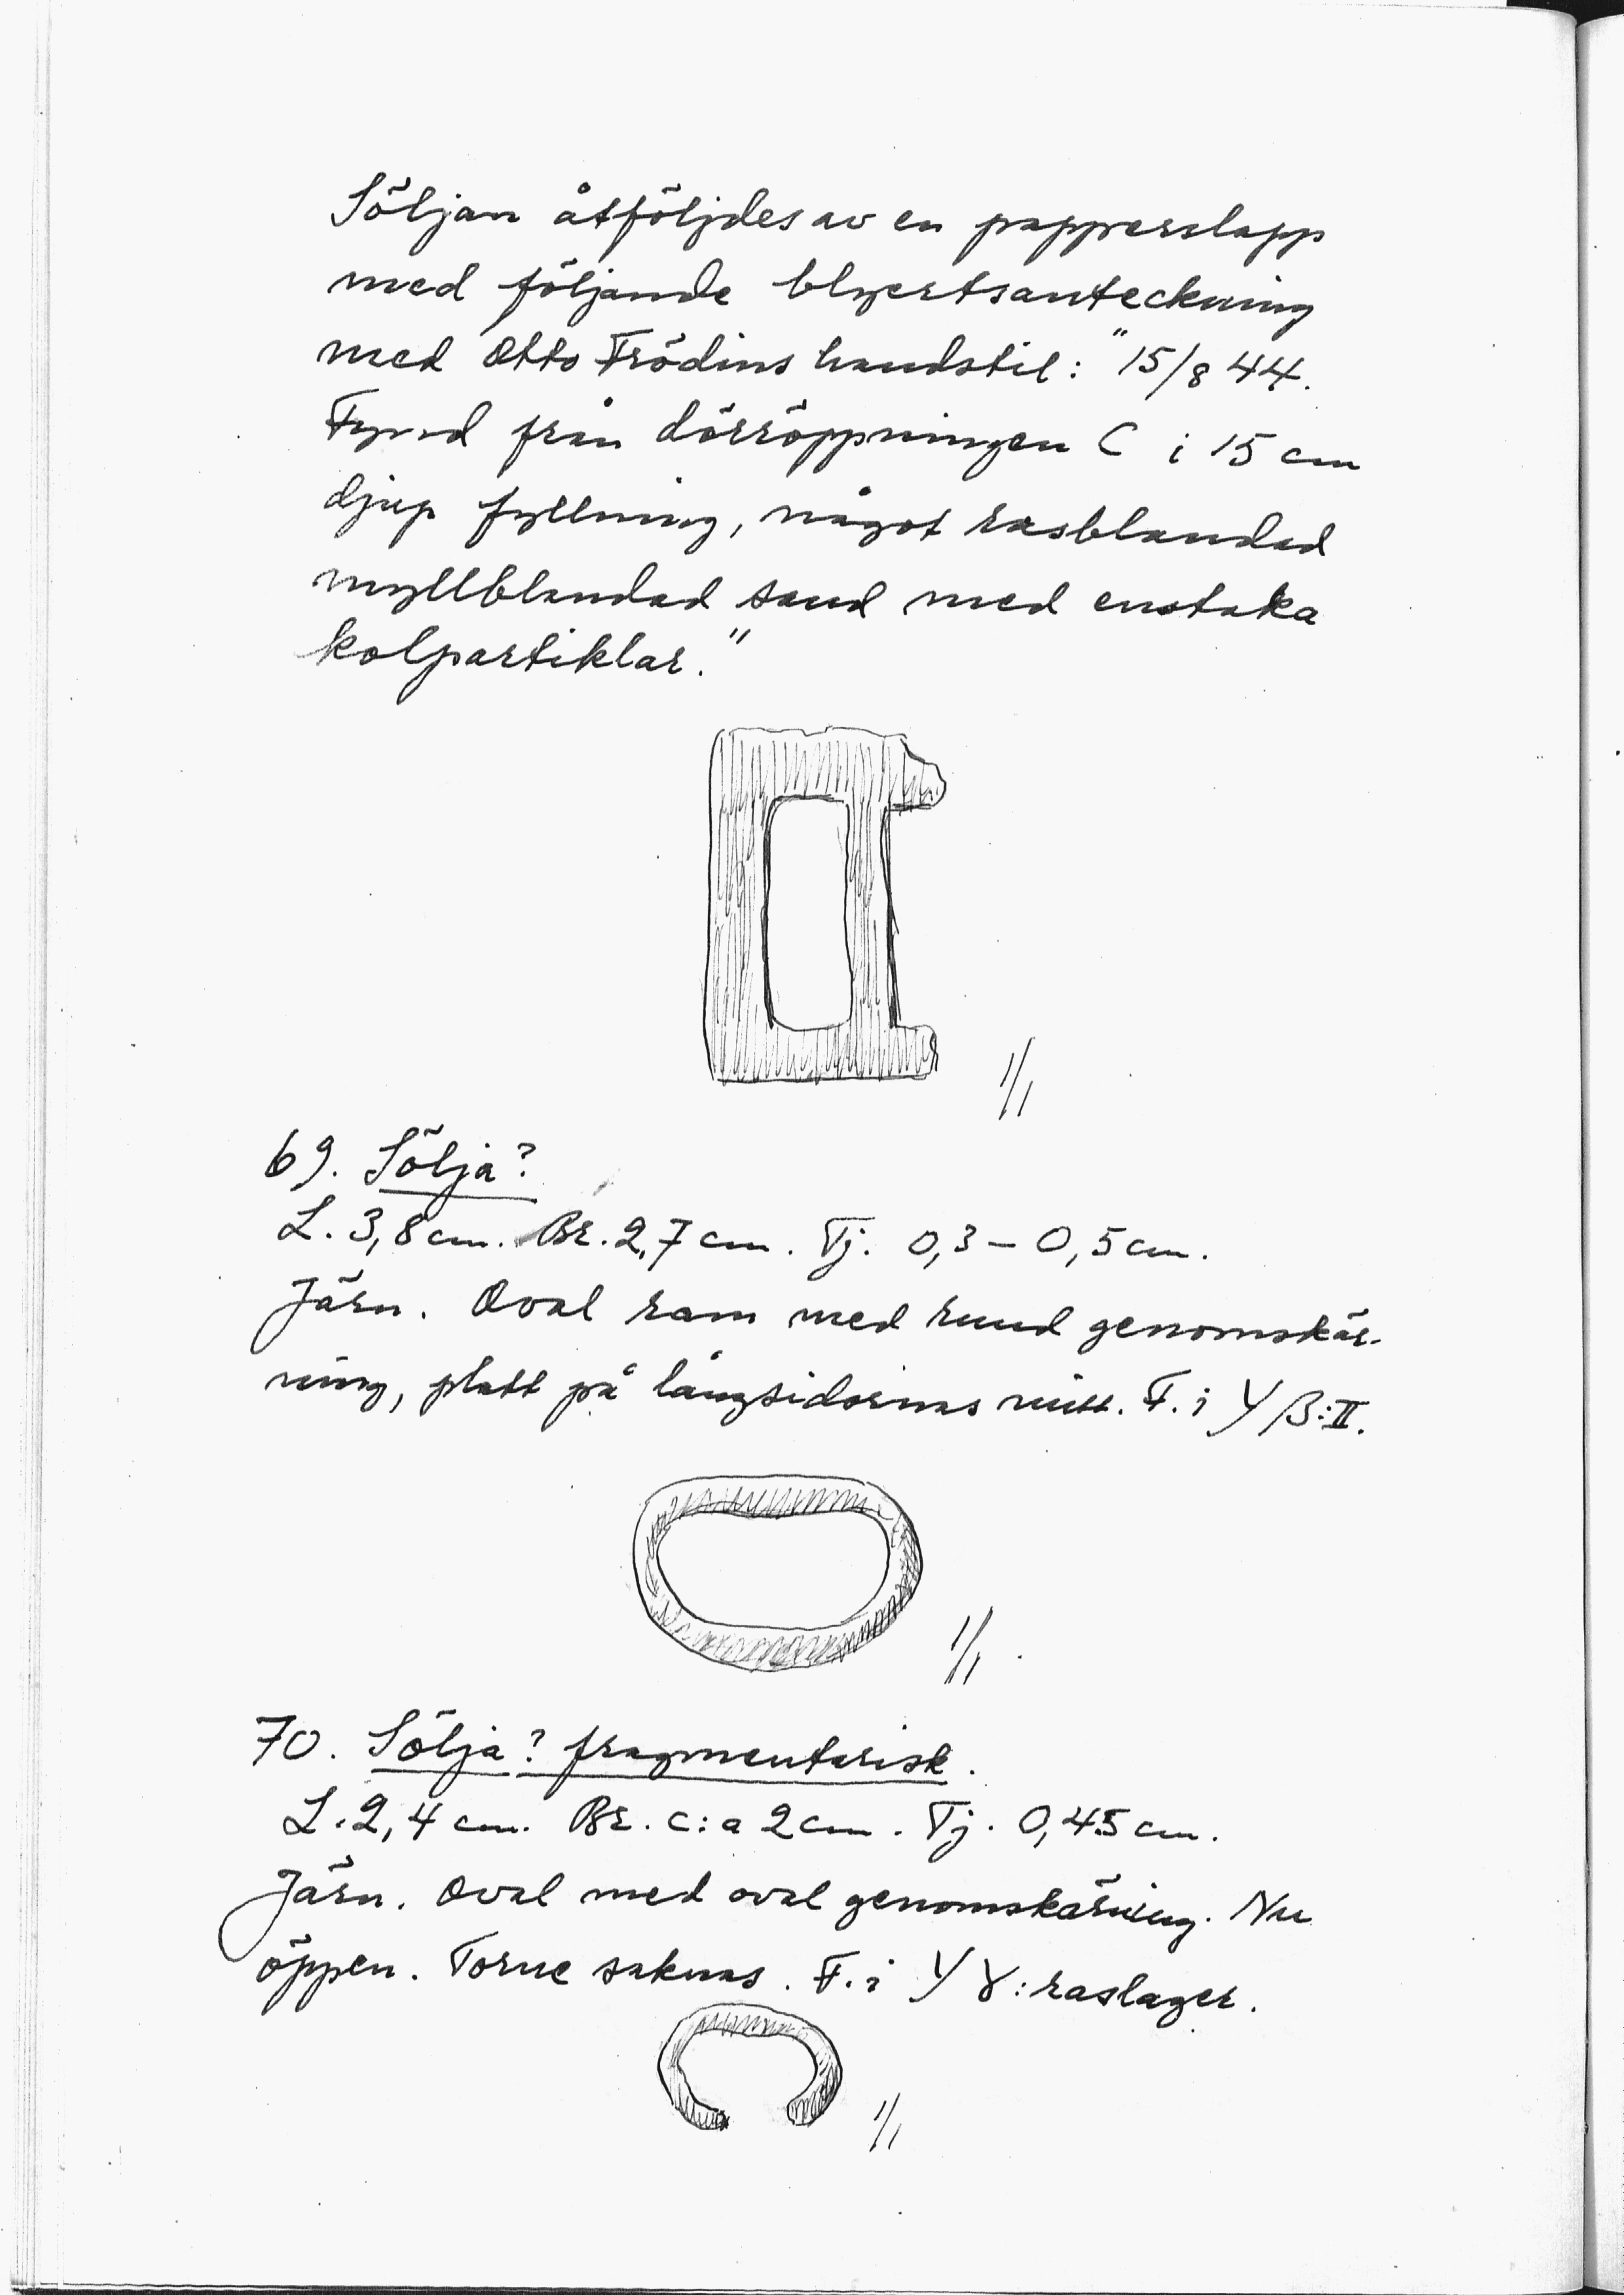 Söljan åtföljdes av en papperslapp
med följande blyertsanteckning
med Otto Frödins handstil: "15/8 44.
Fynd från dörröppningen C i 15 cm
djup fyllning, något rasblandad
myllblandad sand med enstaka
kolpartiklar."
1/1
69. Sölja?
L. 3,8 cm. Br. 2,7 cm. Tj. 0,3 – 0,5 cm.
Järn. Oval ram med rund genomskär-
ning, platt på långsidornas mitt. F. i Y β:II.
1/1.
70. Sölja? fragmentarisk.
L. 2,4 cm. Br. c:a 2 cm. Tj. 0,45 cm.
Järn. Oval med oval genomskärning. Nu
öppen. Torne saknas. F. i Y γ: raslager.
1/1